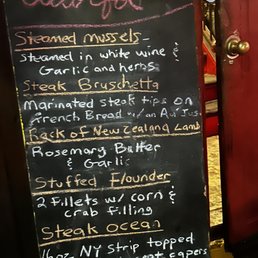 Steamed mussels-
Steamed in white wine &
Garlic and herbs
Steak Bruschetta
Marinated steak tips on
French Bread w/ an Au Jus
Rack of New Zealand Lamb
Rosemary Butter
& Garlic
Stuffed Flounder
2 fillets w/ corn &
crab filling
Steak ocean
16oz NY Strip topped
capers